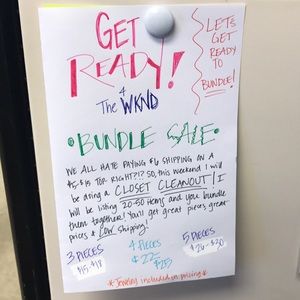 GET
READY!
4
The WKND
LET'S
GET
READY
TO
BUNDLE!
•BUNDLE SALE•
WE ALL HATE PAYING $6 SHIPPING ON A
$5-$15 TOP, RIGHT?!? SO, this weekend I will
be doing a CLOSET CLEANOUT! I
will be listing 20-50 items and you bundle
them together! You'll get great pieces, great
prices & LOW shipping!
3 PIECES
$15-$18
4 PIECES
$22-
$25
5 PIECES
$26-$30
* Jewelry included in pricing *